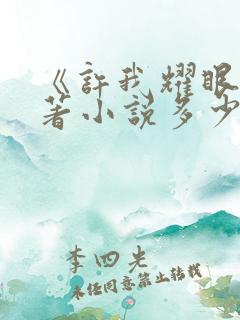 《許我耀眼
著小說多少
李四光
未任同意禁止转载